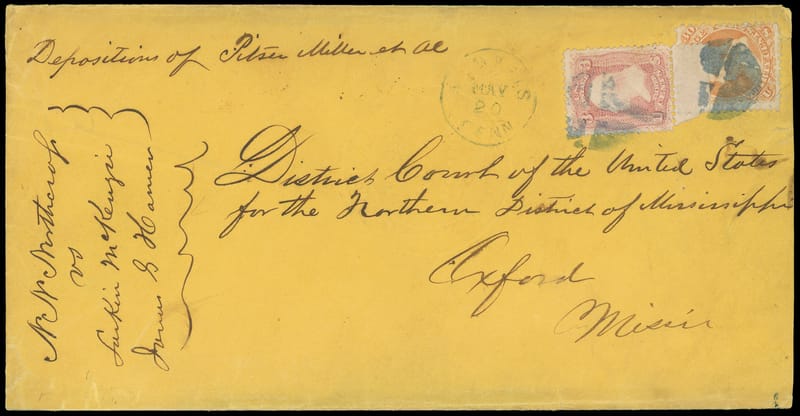 Depositions of Pitser Miller et al
MEMPHIS
MAY
20
TENN
30
3
3
District Court of the United States
for the Northern District of Mississippi
Oxford
Missi
N N Northcrop
vs
Larkin McKenzie